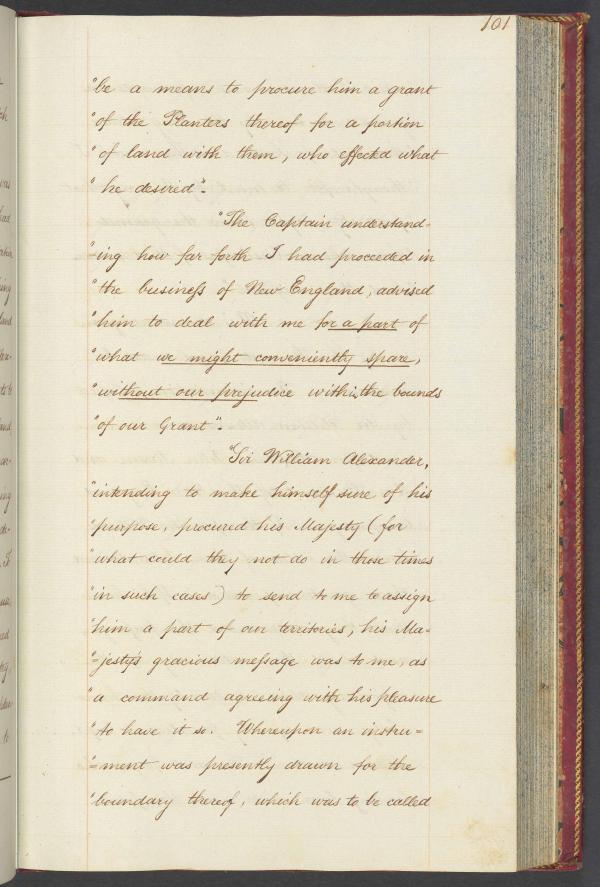 101
"be a means to procure him a grant
"of the Planters thereof for a portion
"of land with them, who effectd what
"he desired".
"The Captain understand-
"-ing how far forth I had proceeded in
"the business of New England, advised
"him to deal with me for a part of
"what we might conveniently spare,
"without our prejudice within the bounds
"of our Grant".
"Sir William Alexander,
"intending to make himself sure of his
"purpose, procured his Majesty (for
"what could they not do in those times
"in such cases) to send to me to assign
"him a part of our territories; his Ma-
"-jesty's gracious message was to me, as
"a command agreeing with his pleasure
"to have it so. Whereupon an instru-
"-ment was presently drawn for the
"boundary thereof, which was to be called